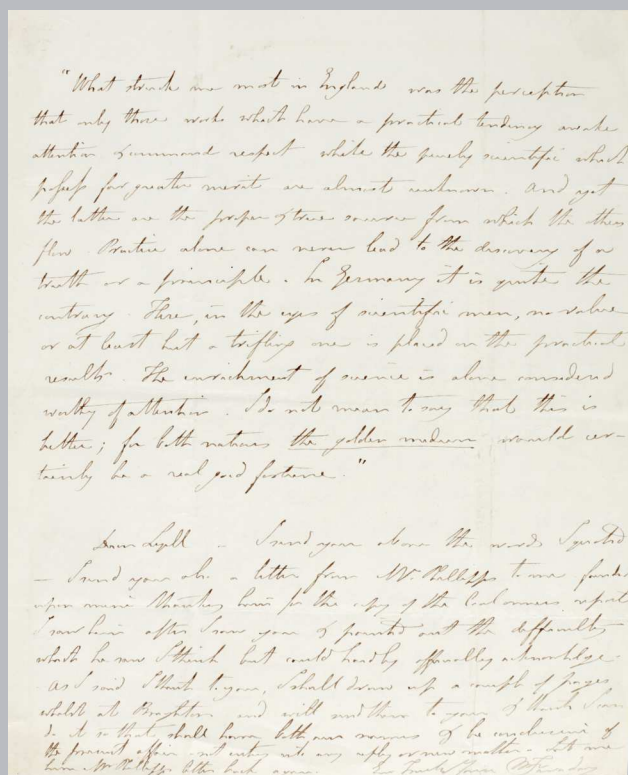 "What struck me most in England was the perception
that only those works which have a practical tendency awake
attention & command respect while the purely scientific which
possess far greater merit are almost unknown. And yet
the latter are the proper & true source from which the others
flow. Practice alone can never lead to the discovery of a
truth or a principle. In Germany it is quite the
contrary. Here, in the eyes of scientific men, no value
or at least but a trifling one is placed on the practical
results. The enrichment of science is alone considered
worthy of attention. I do not mean to say that this is
better; for both nations the golden medium would cer-
tainly be a real good fortune."
Dear Lyell - I send you above the words I quoted
- I send you also a letter from Mr. Phillipps to me founded
upon mine thanking him for the copy of the coal owners report
I saw him after I saw you & pointed out the difficulties
which he saw I think but could hardly officially acknowledge.
As I said I think to you, I shall draw up a couple of pages
whilst at Brighton and will send them to you & think I can
do it so that shall have both our names & be conclusive of
the present affair - not enter into any reply or new matter. Let me
have Mr Phillipps letter back again. Ever Truly Yours M Faraday